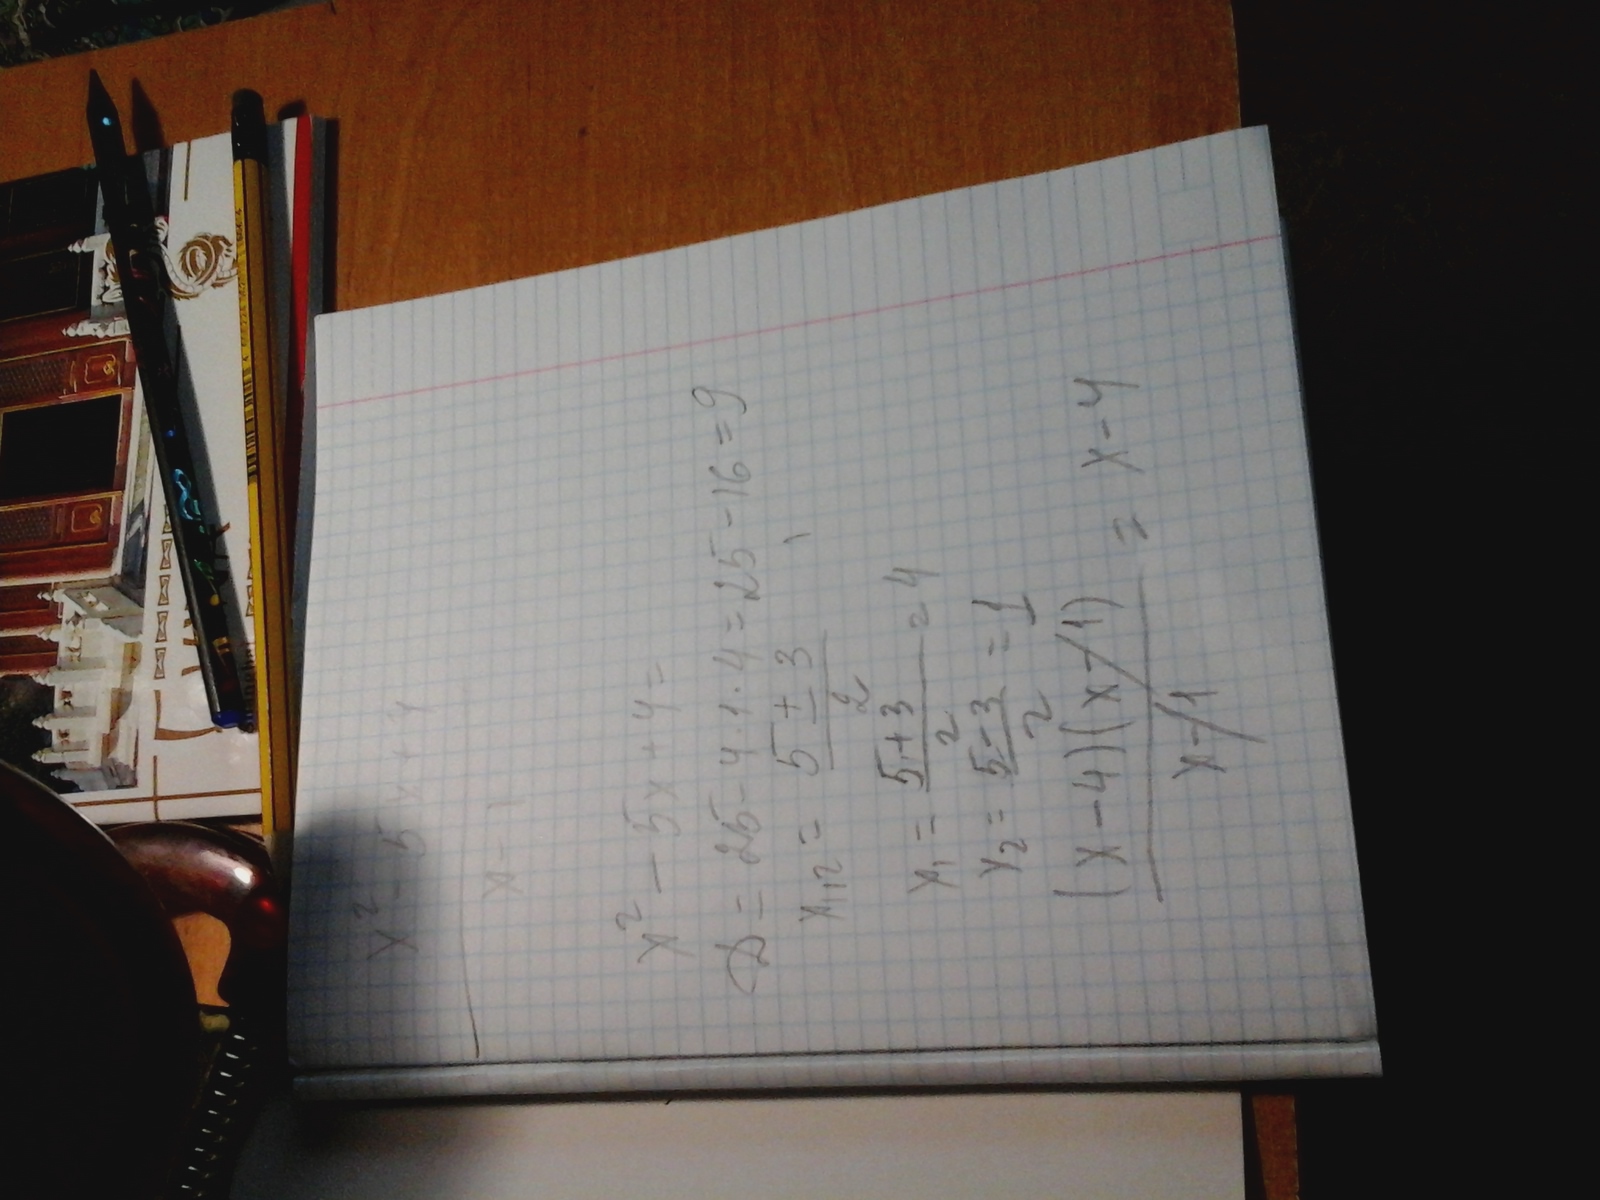 x² - 5x + 4
x - 1
x² - 5x + 4 =
D = 25 - 4·1·4 = 25 - 16 = 9
x₁,₂ = (5 ± 3)/2
x₁ = (5 + 3)/2 = 4
x₂ = (5 - 3)/2 = 1
(x - 4)(x - 1)/(x - 1) = x - 4